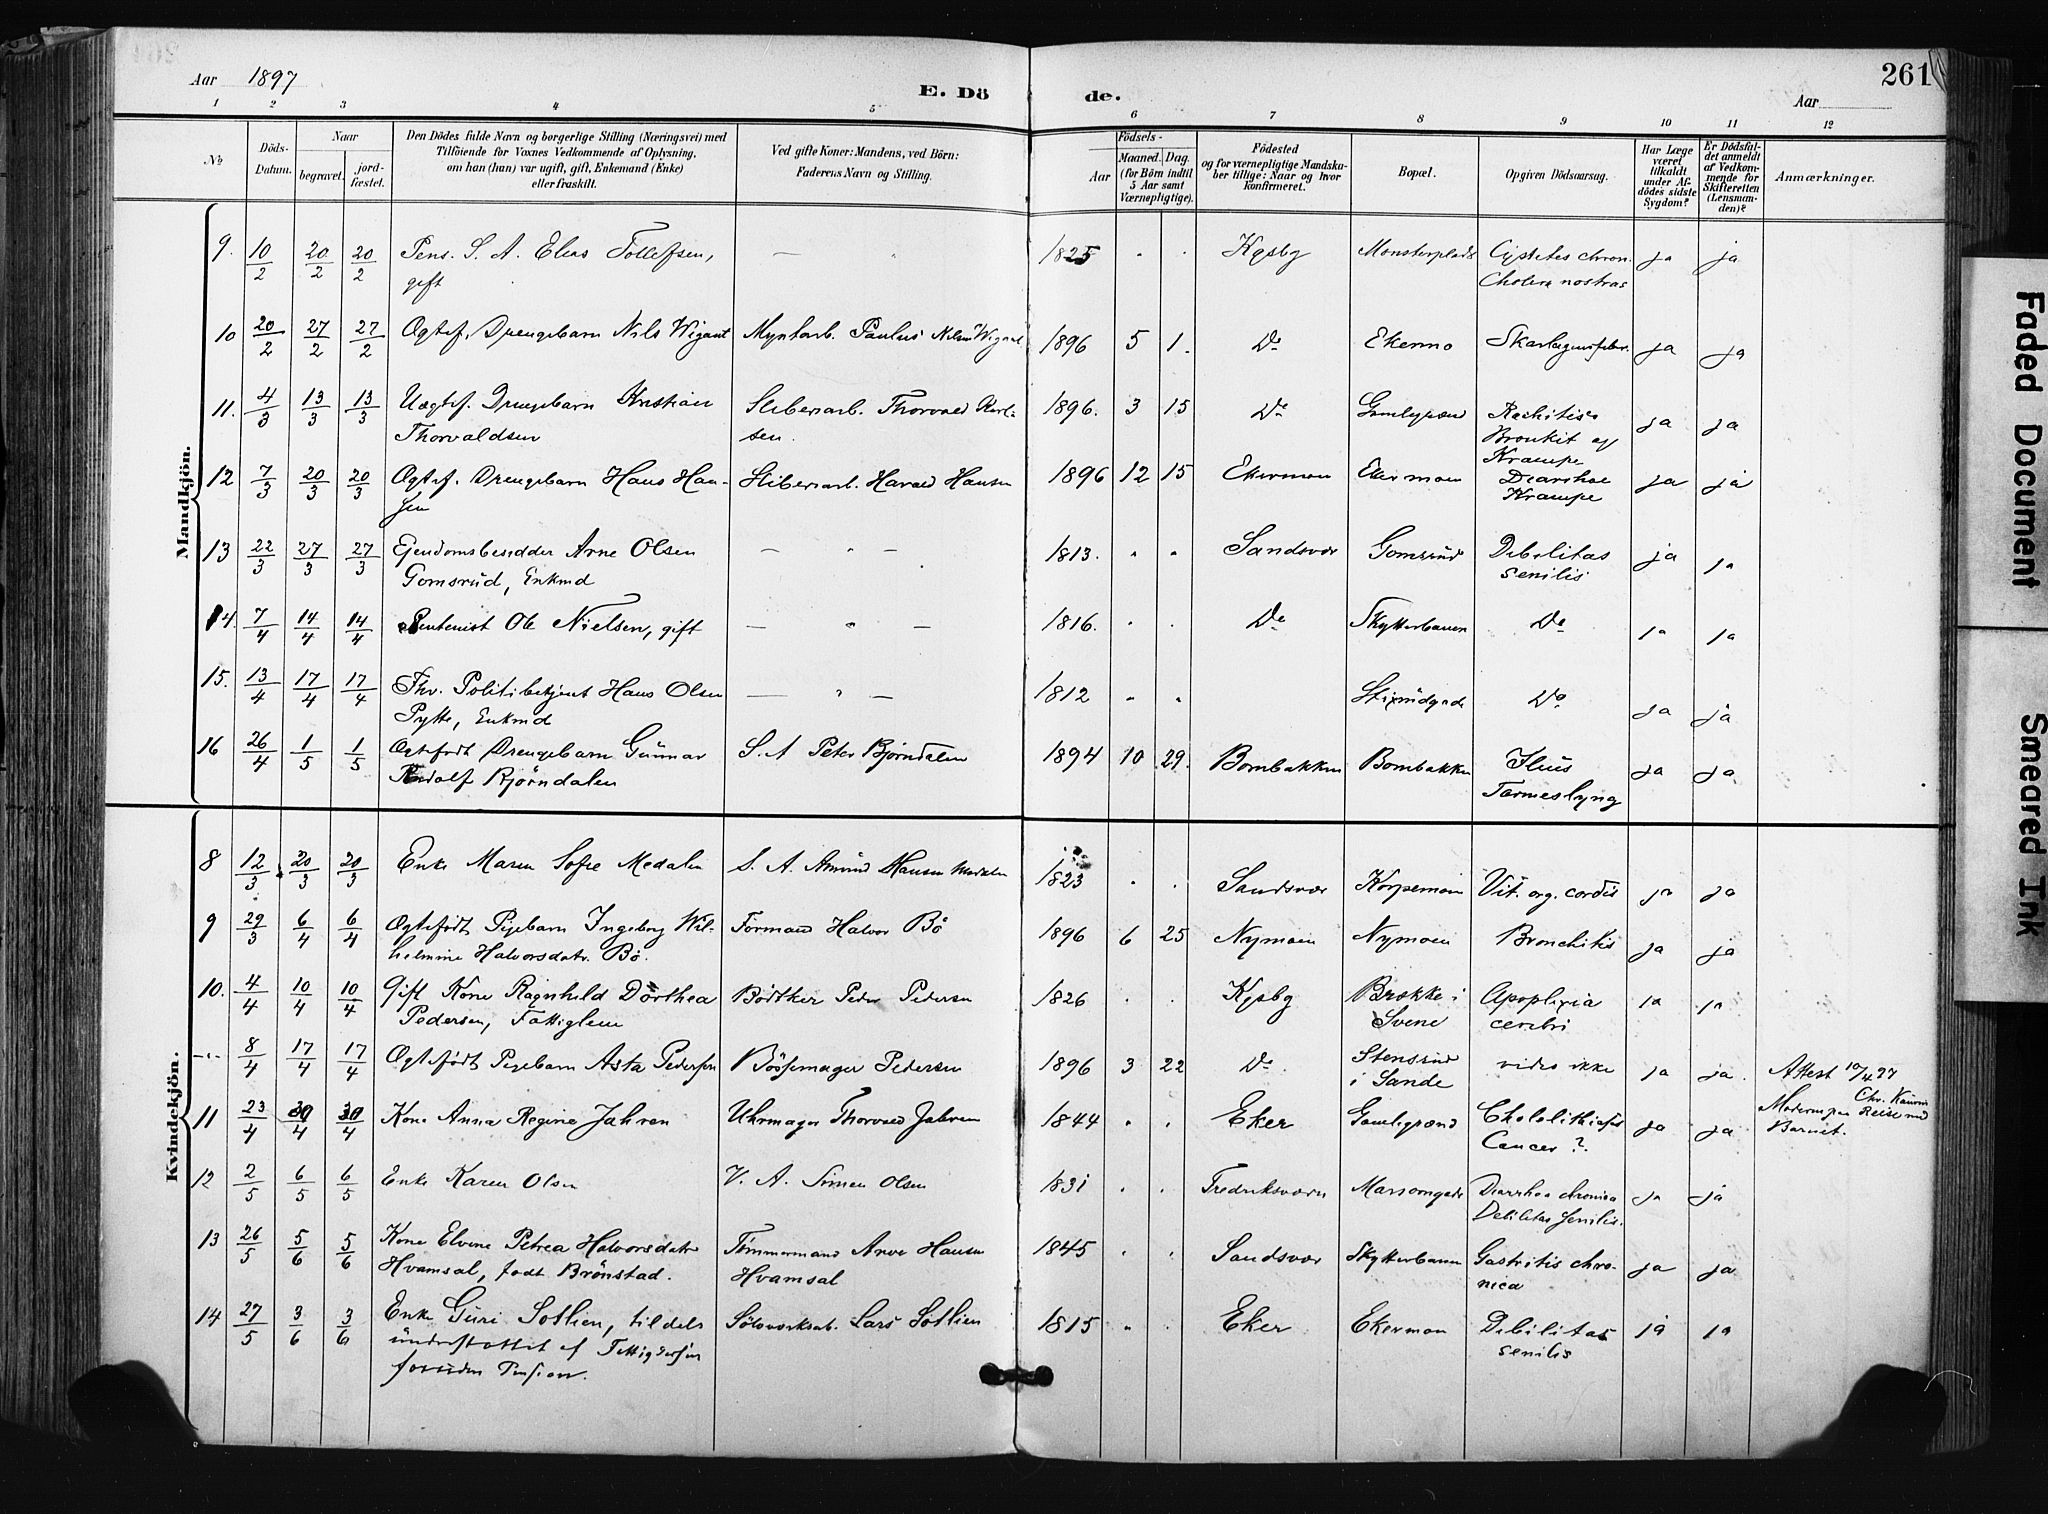 Aar 1897
E. Dö
de.
261
Aar
1 2 3 4 5 6 7 8 9 10 11 12
No
Döds-
Datum.
Naar
begravet.
jord-
fæstet.
Den Dödes fulde Navn og borgerlige Stilling (Næringsvei) med
Tilföiende for Voxnes Vedkommende af Oplysning,
om han (hun) var ugift, gift, Enkemand (Enke)
eller fraskilt.
Ved gifte Koner: Mandens, ved Börn:
Faderens Navn og Stilling.
Födsels-
Aar
Maaned. Dag.
(for Börn indtil
5 Aar samt
Værnepligtige).
Födested
og for værnepligtige Mandska-
ber tillige: Naar og hvor
konfirmeret.
Bopæl.
Opgiven Dödsaarsag.
Har Læge
været
tilkaldt
under Af-
dödes sidste
Sygdom?
Er Dödsfal-
det anmeldt
af Vedkom-
mende for
Skifteretten
(Lensman-
den)?
Anmærkninger.
Mandkjön.
9. 10/2 20/2 20/2 Pens. S. A. Elias Tollefsen, — " 1825 " " Kgsby Monsterplads Cystetes chron. ja ja
gift Cholera nostras
10 20/2 27/2 27/2 Ogtef. Drengebarn Nils Wigant Myntarb. Paulus 1896 5 1. Do Ekermo ja ja
11. 4/3 13/3 13/3 Uægtef. Drengebarn Kristian Sliberiarb. Thorvald Karl- 1896. 3 15 Do Gamlegrænd Rachitis ja ja
Thorvaldsen sen. Bronkit og
Krampe
12 7/3 20/3 20/3 Ogtef. Drengebarn Hans Han- Sliberiarb. Harald Hansen 1896 12 15 Ekermoen Ekermoen Diarrhoe ja ja
sen Krampe
13 22/3 27/3 27/3 Ejendomsbesidder Arne Olsen — " — 1813. " " Sandsvær Gomsrud Debilitas ja ja
Gomsrud, Enkmd senilis
14. 7/4 14/4 14/4 Rentenist Ole Nielsen, gift — " — 1816. " " Do Skytterbanen Do ja ja
15. 13/4 17/4 17/4 Fhv. Politibetjent Hans Olsen — " — 1812 " " Do ja ja
Pytte, Enkmd
16 26/4 1/5 1/5 Ogtefødt Drengebarn Gunnar S. A Peter Bjørndalen 1894 10 29. Bombakken Bombakken Ileus ja ja
Rudolf Bjørndalen Tarmeslyng
Kvindekjön.
8 12/3 20/3 20/3 Enke Maren Sofie Medalen S. A. Amund Hansen Medalen 1823 " " Sandsvær Korpemoen Vit. org. cordis ja ja
9 29/3 6/4 6/4 Ogtefødt Pigebarn Ingeborg Wil- Formand Halvor Bö 1896 6 25 Nymoen Nymoen Bronchitis ja ja
helmine Halvorsdatr. Bö.
10. 4/4 10/4 10/4 Gift Kone Ragnhild Dorthea Bødtker Peder Pedersen 1826 " " Kgsby Brække i Apoplexia ja ja
Pedersen, Fattiglem Svene cerebri
-"- 8/4 17/4 17/4 Ogtefødt Pigebarn Asta Pedersen Bössemager Pedersen 1896 3 22 Do Stensrud vides ikke ja ja. Attest 10/4 97
i Sande Chr. Kaurin
11 23/4 30/4 30/4 Kone Anna Regine Jahren Uhrmager Thorvald Jahren 1844 " " Eker Gamlegrænd Chololithiasis ja ja Moderen paa Reise med
Cancer? Barnet.
12 2/5 6/5 6/5 Enke Karen Olsen V. A. Simen Olsen 1831 " " Fredriksværn Diarrhoe chronica ja ja
Debilitas senilis.
13 26/5 5/6 5/6 Kone Elvine Petrea Halvorsdatr Tømmermand Arve Hansen 1845 " " Sandsvær Skytterbanen Gastritis chro- ja ja
Hvamsal, født Brönstad. Hvamsal nica
14 27/5 3/6 3/6 Enke Guri Sotlien, til dels Sölvverksab. Lars Sotlien 1815 " " Eker Ekermoen Debilitas ja ja
understøttet af senilis
foruden Pension.
Faded Document
Smeared Ink